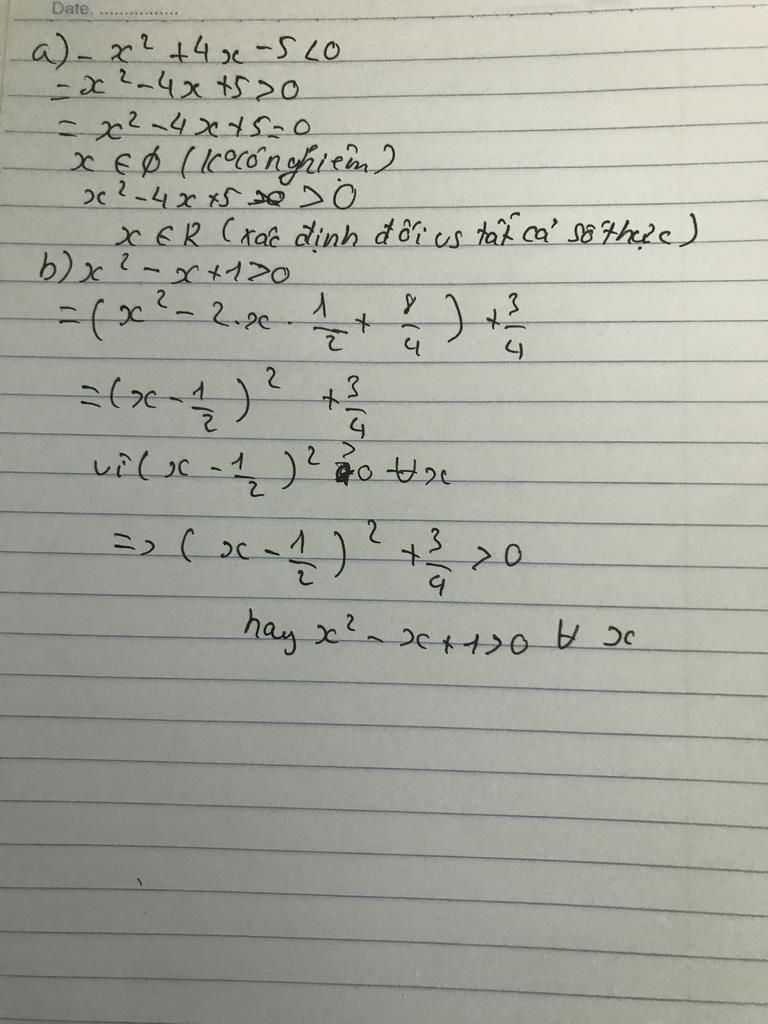 Date. ................
a) - x² + 4x - 5 < 0
= x² - 4x + 5 > 0
= x² - 4x + 5 = 0
x ∈ ∅ (ko có nghiệm)
x² - 4x + 5 > 0
x ∈ R (xác định đối vs tất cả số thực)
b) x² - x + 1 > 0
= (x² - 2.x.1/2 + 8/4) + 3/4
= (x - 1/2)² + 3/4
vì (x - 1/2)² ≥ 0 ∀x
=> (x - 1/2)² + 3/4 > 0
hay x² - x + 1 > 0 ∀ x